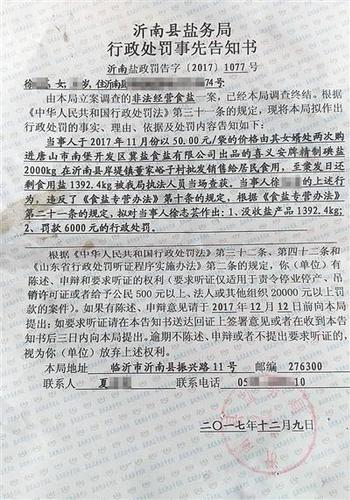 沂南县盐务局
行政处罚事先告知书
沂南盐政罚告字〔2017〕1077号
徐 女, 岁,住沂南县 74号:
由本局立案调查的非法经营食盐一案,已经本局调查终结。根据
《中华人民共和国行政处罚法》第三十一条的规定,现将本局拟作出
行政处罚的事实、理由、依据及处罚内容告知如下:
当事人于2017年11月份以50.00元/袋的价格由其女婿处两次购
进唐山市南堡开发区冀盐食盐有限公司出品的喜义安牌精制碘盐
2000kg在沂南县岸堤镇暖峪子村批发销售给居民食用,至案发日还
剩食用盐1392.4kg被我局执法人员当场查获。当事人徐 的上述行
为,违反了《食盐专营办法》第十条的规定,根据《食盐专营办法》
第二十一条的规定,拟对当事人徐志芸作出:1、没收盐产品1392.4kg;
2、罚款6000元的行政处罚。
根据《中华人民共和国行政处罚法》第三十二条、第四十二条和
《山东省行政处罚听证程序实施办法》第二条的规定,你(单位)有
陈述、申辩和要求听证的权利(要求听证仅适用于责令停业停产、吊
销许可证或者给予公民500元以上、法人或其他组织20000元以上罚
款的案件)。如果有陈述、申辩意见请于2017年12月12日前向本局
提出;如要求听证请在本告知书送达回证上签署意见或者在收到本告
知书后三日内向本局提出。逾期不陈述、申辩或者不提出要求听证的,
视为你(单位)放弃上述权利。
本局地址 临沂市沂南县振兴路11号 邮编 276300
联系人 夏 联系电话 05 10
二〇一七年十二月九日